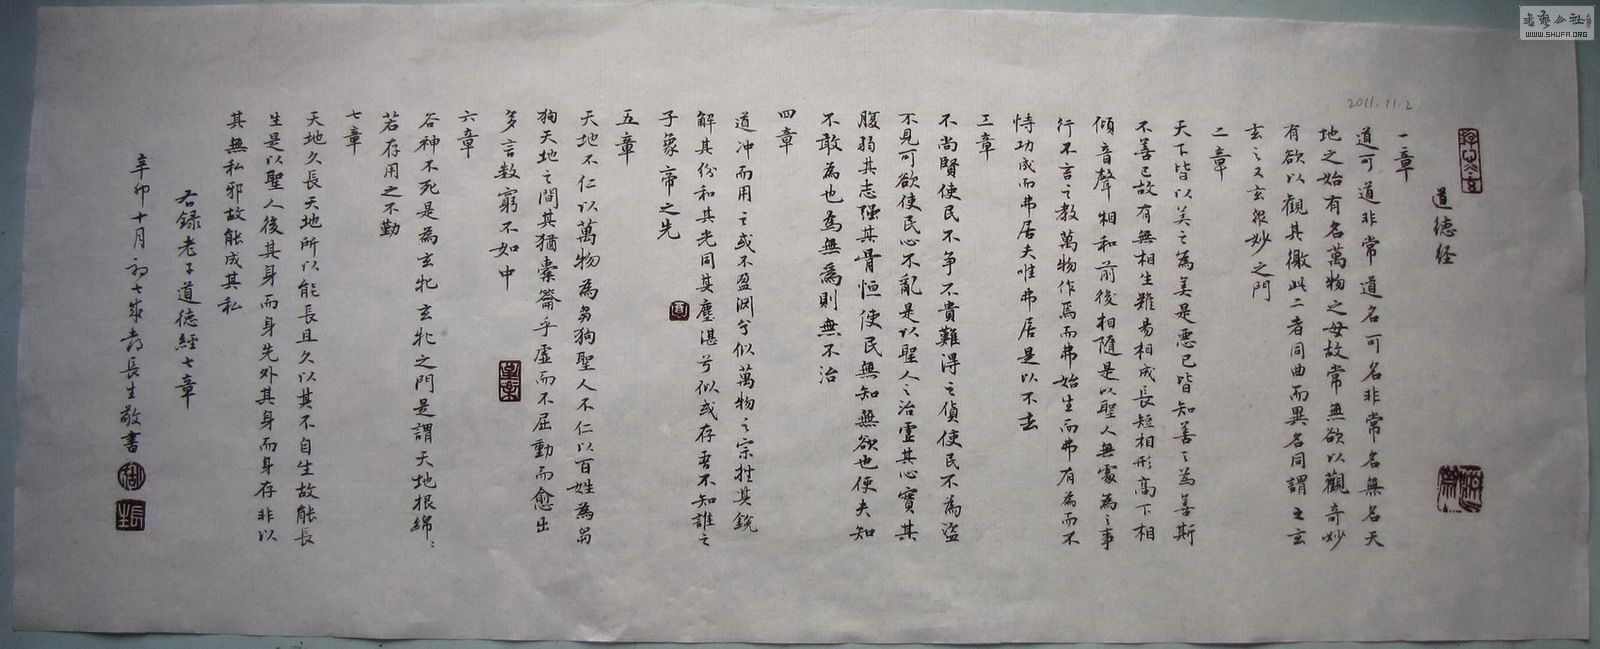 道德经
一章
道可道非常道名可名非常名無名天
地之始有名萬物之母故常無欲以觀奇妙
有欲以觀其徼此二者同曲而異名同謂之玄
玄之又玄眾妙之門
二章
天下皆以美之為美是惡已皆知善之為善斯
不善已故有無相生難易相成長短相形高下相
傾音聲相和前後相隨是以聖人無處為之事
行不言之教萬物作焉而弗始生而弗有為而不
恃功成而弗居夫唯弗居是以不去
三章
不尚賢使民不争不貴難得之貨使民不為盜
不見可欲使民心不亂是以聖人之治虛其心實其
腹弱其志强其骨恒使民無知無欲也使夫知
不敢為也為無為則無不治
四章
道冲而用之或不盈渊兮似萬物之宗挫其銳
解其份和其光同其塵湛兮似或存吾不知誰之
子象帝之先
五章
天地不仁以萬物為芻狗聖人不仁以百姓為芻
狗天地之間其猶橐籥乎虛而不屈動而愈出
多言数窮不如中
六章
谷神不死是為玄牝玄牝之門是謂天地根綿々
若存用之不勤
七章
天地久長天地所以能長且久以其不自生故能長
生是以聖人後其身而身先外其身而身存非以
其無私邪故能成其私
右録老子道德經七章
辛卯十月初七 長生敬書
2011.11.2
書藝公社
WWW.SHUFA.ORG